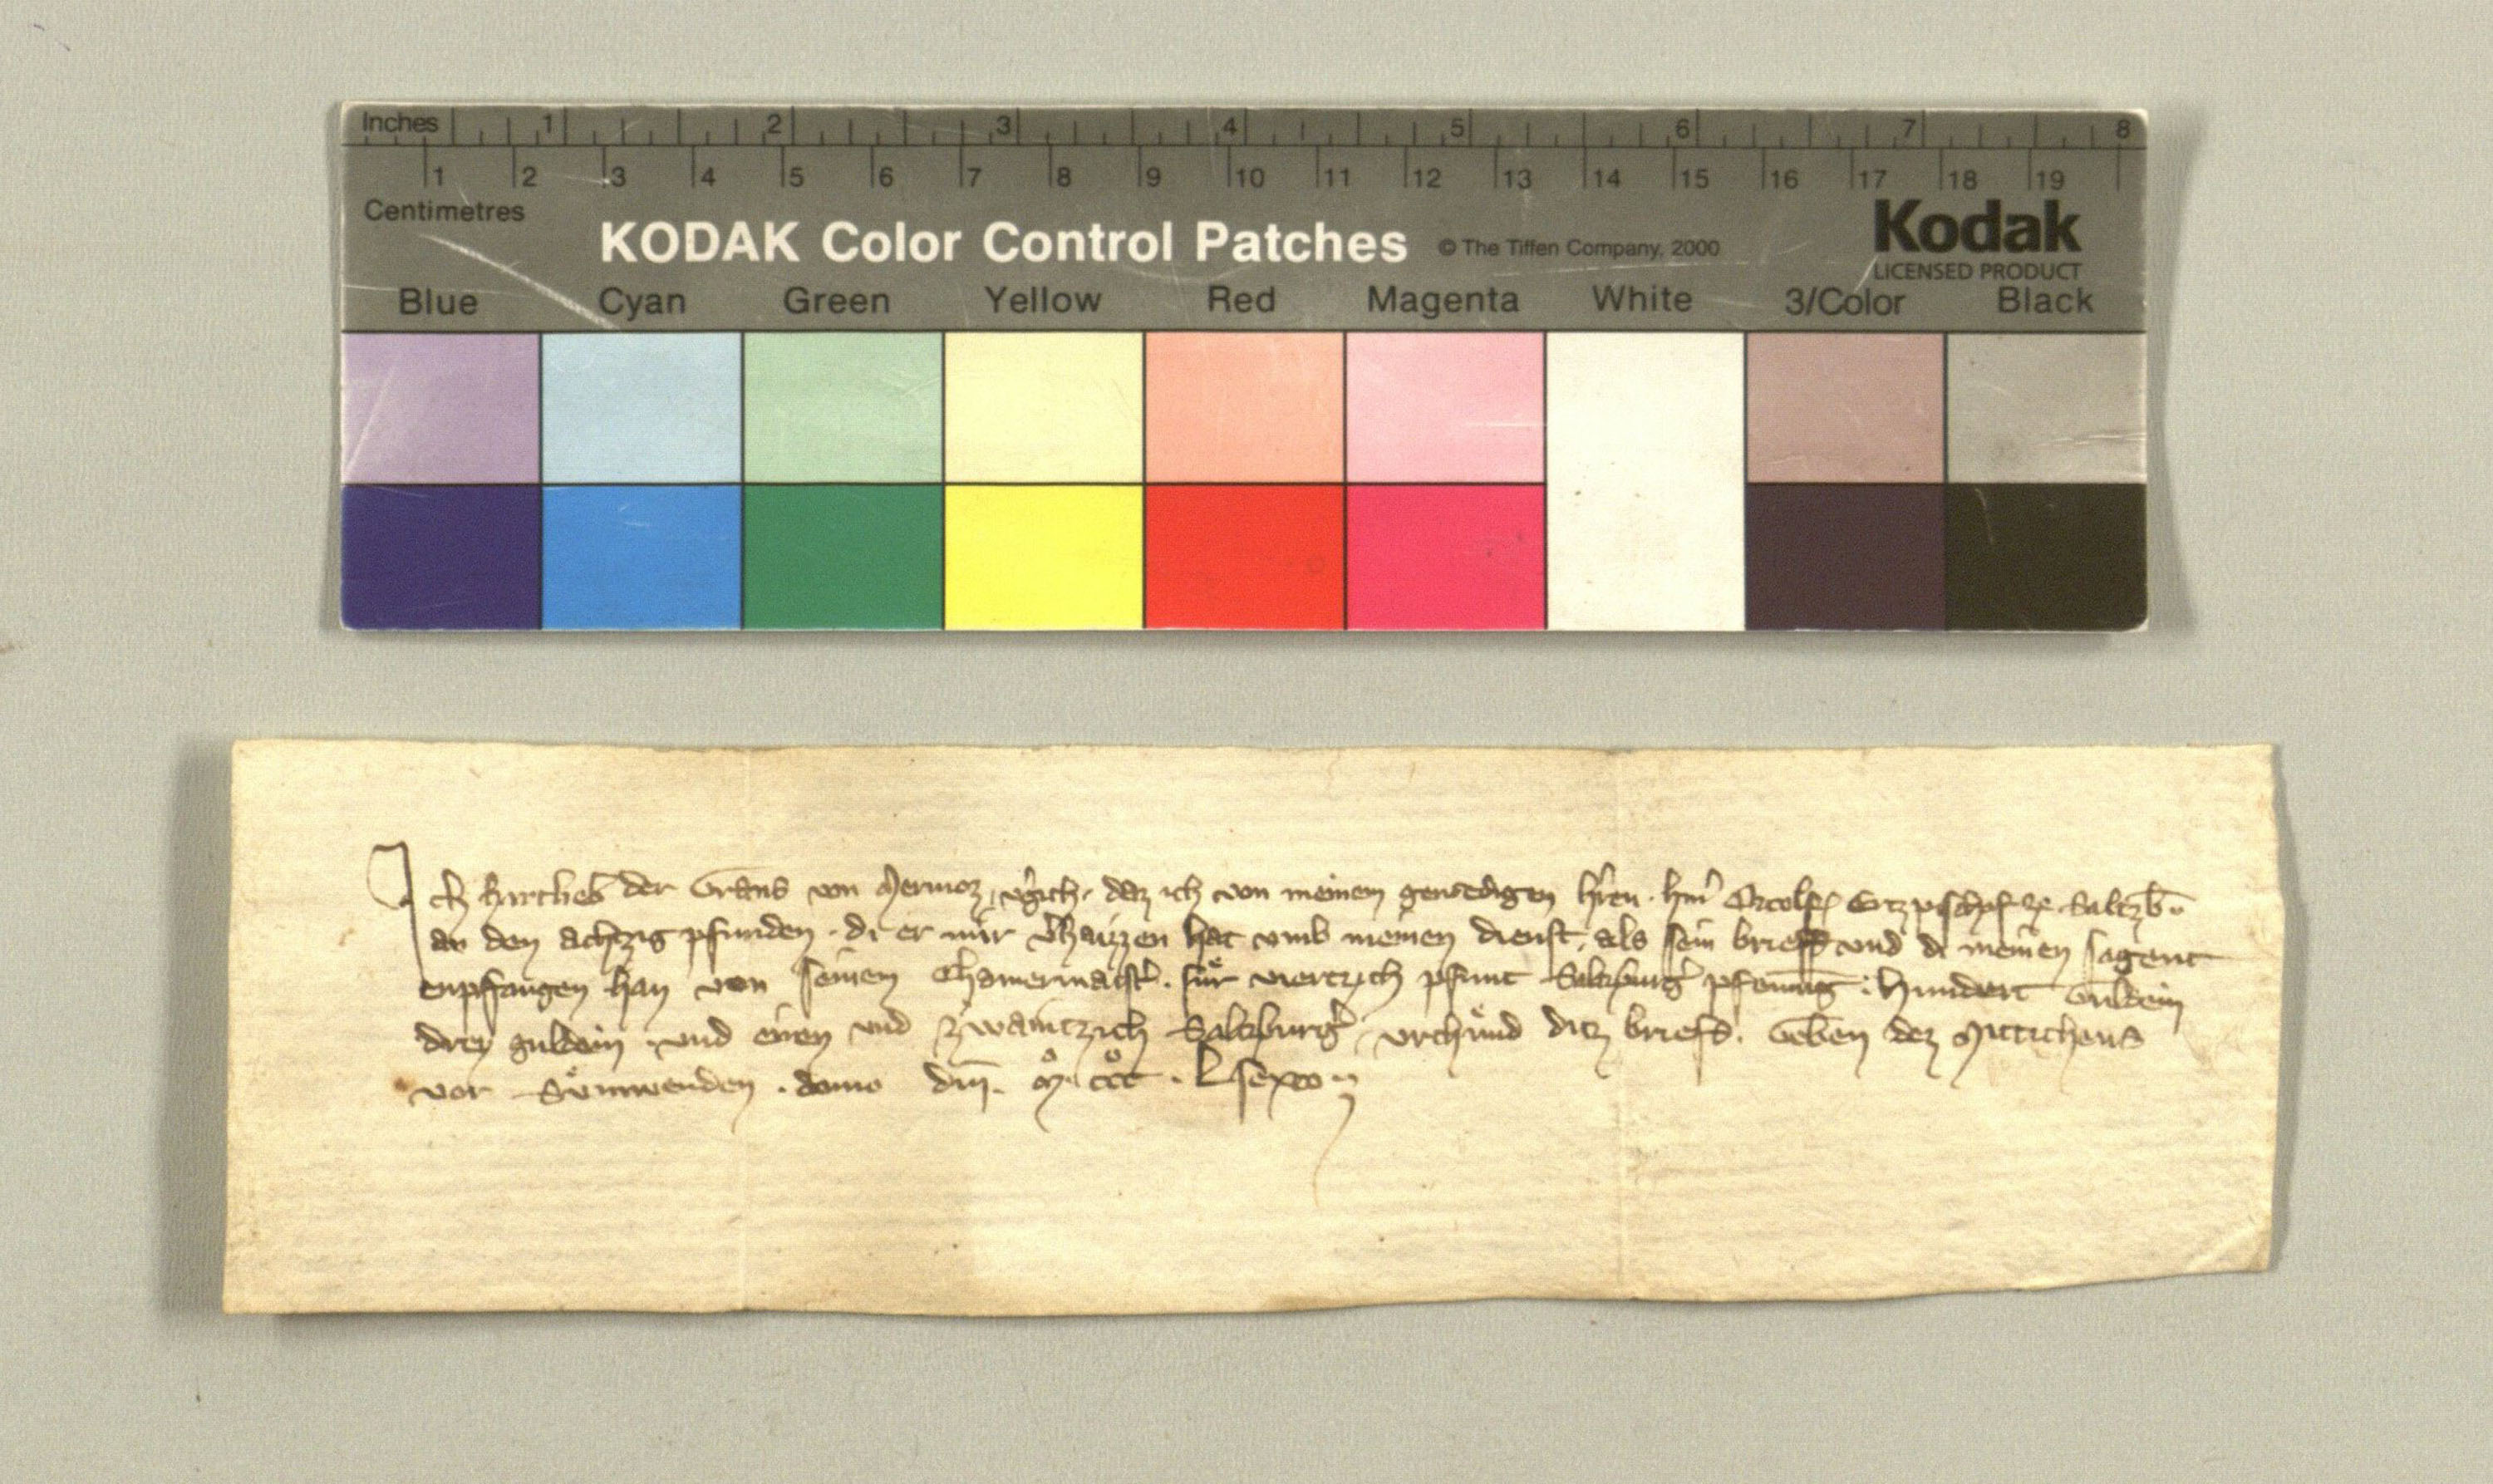 Inches 1 2 3 4 5 6 7 8
1 2 3 4 5 6 7 8 9 10 11 12 13 14 15 16 17 18 19
Centimetres
KODAK Color Control Patches © The Tiffen Company, 2000 Kodak
LICENSED PRODUCT
Blue Cyan Green Yellow Red Magenta White 3/Color Black
Ich hartlieb der Grans von v̾gich · daz ich von meinem genedigen h̾ren · Ortolf Saltzb̅
an den achtzig pfunden · di er mir v̾haizzen hat vmb meinen dienst, als sein brief vnd di meinen sagent
enpfangen han von seinem Chamermaist̾ · fuͤr viertzich pfunt Saltzburg̾ pfenning : Hundert Guldein
drey guldein · vnd einen vnd zwaintzich Saltzburg̾ · vrchuͤnd ditz briefs. Geben dez Mittichens
vor Suͤnnwenden · anno dn̅i. M̊ · cc̊c · Lsexto